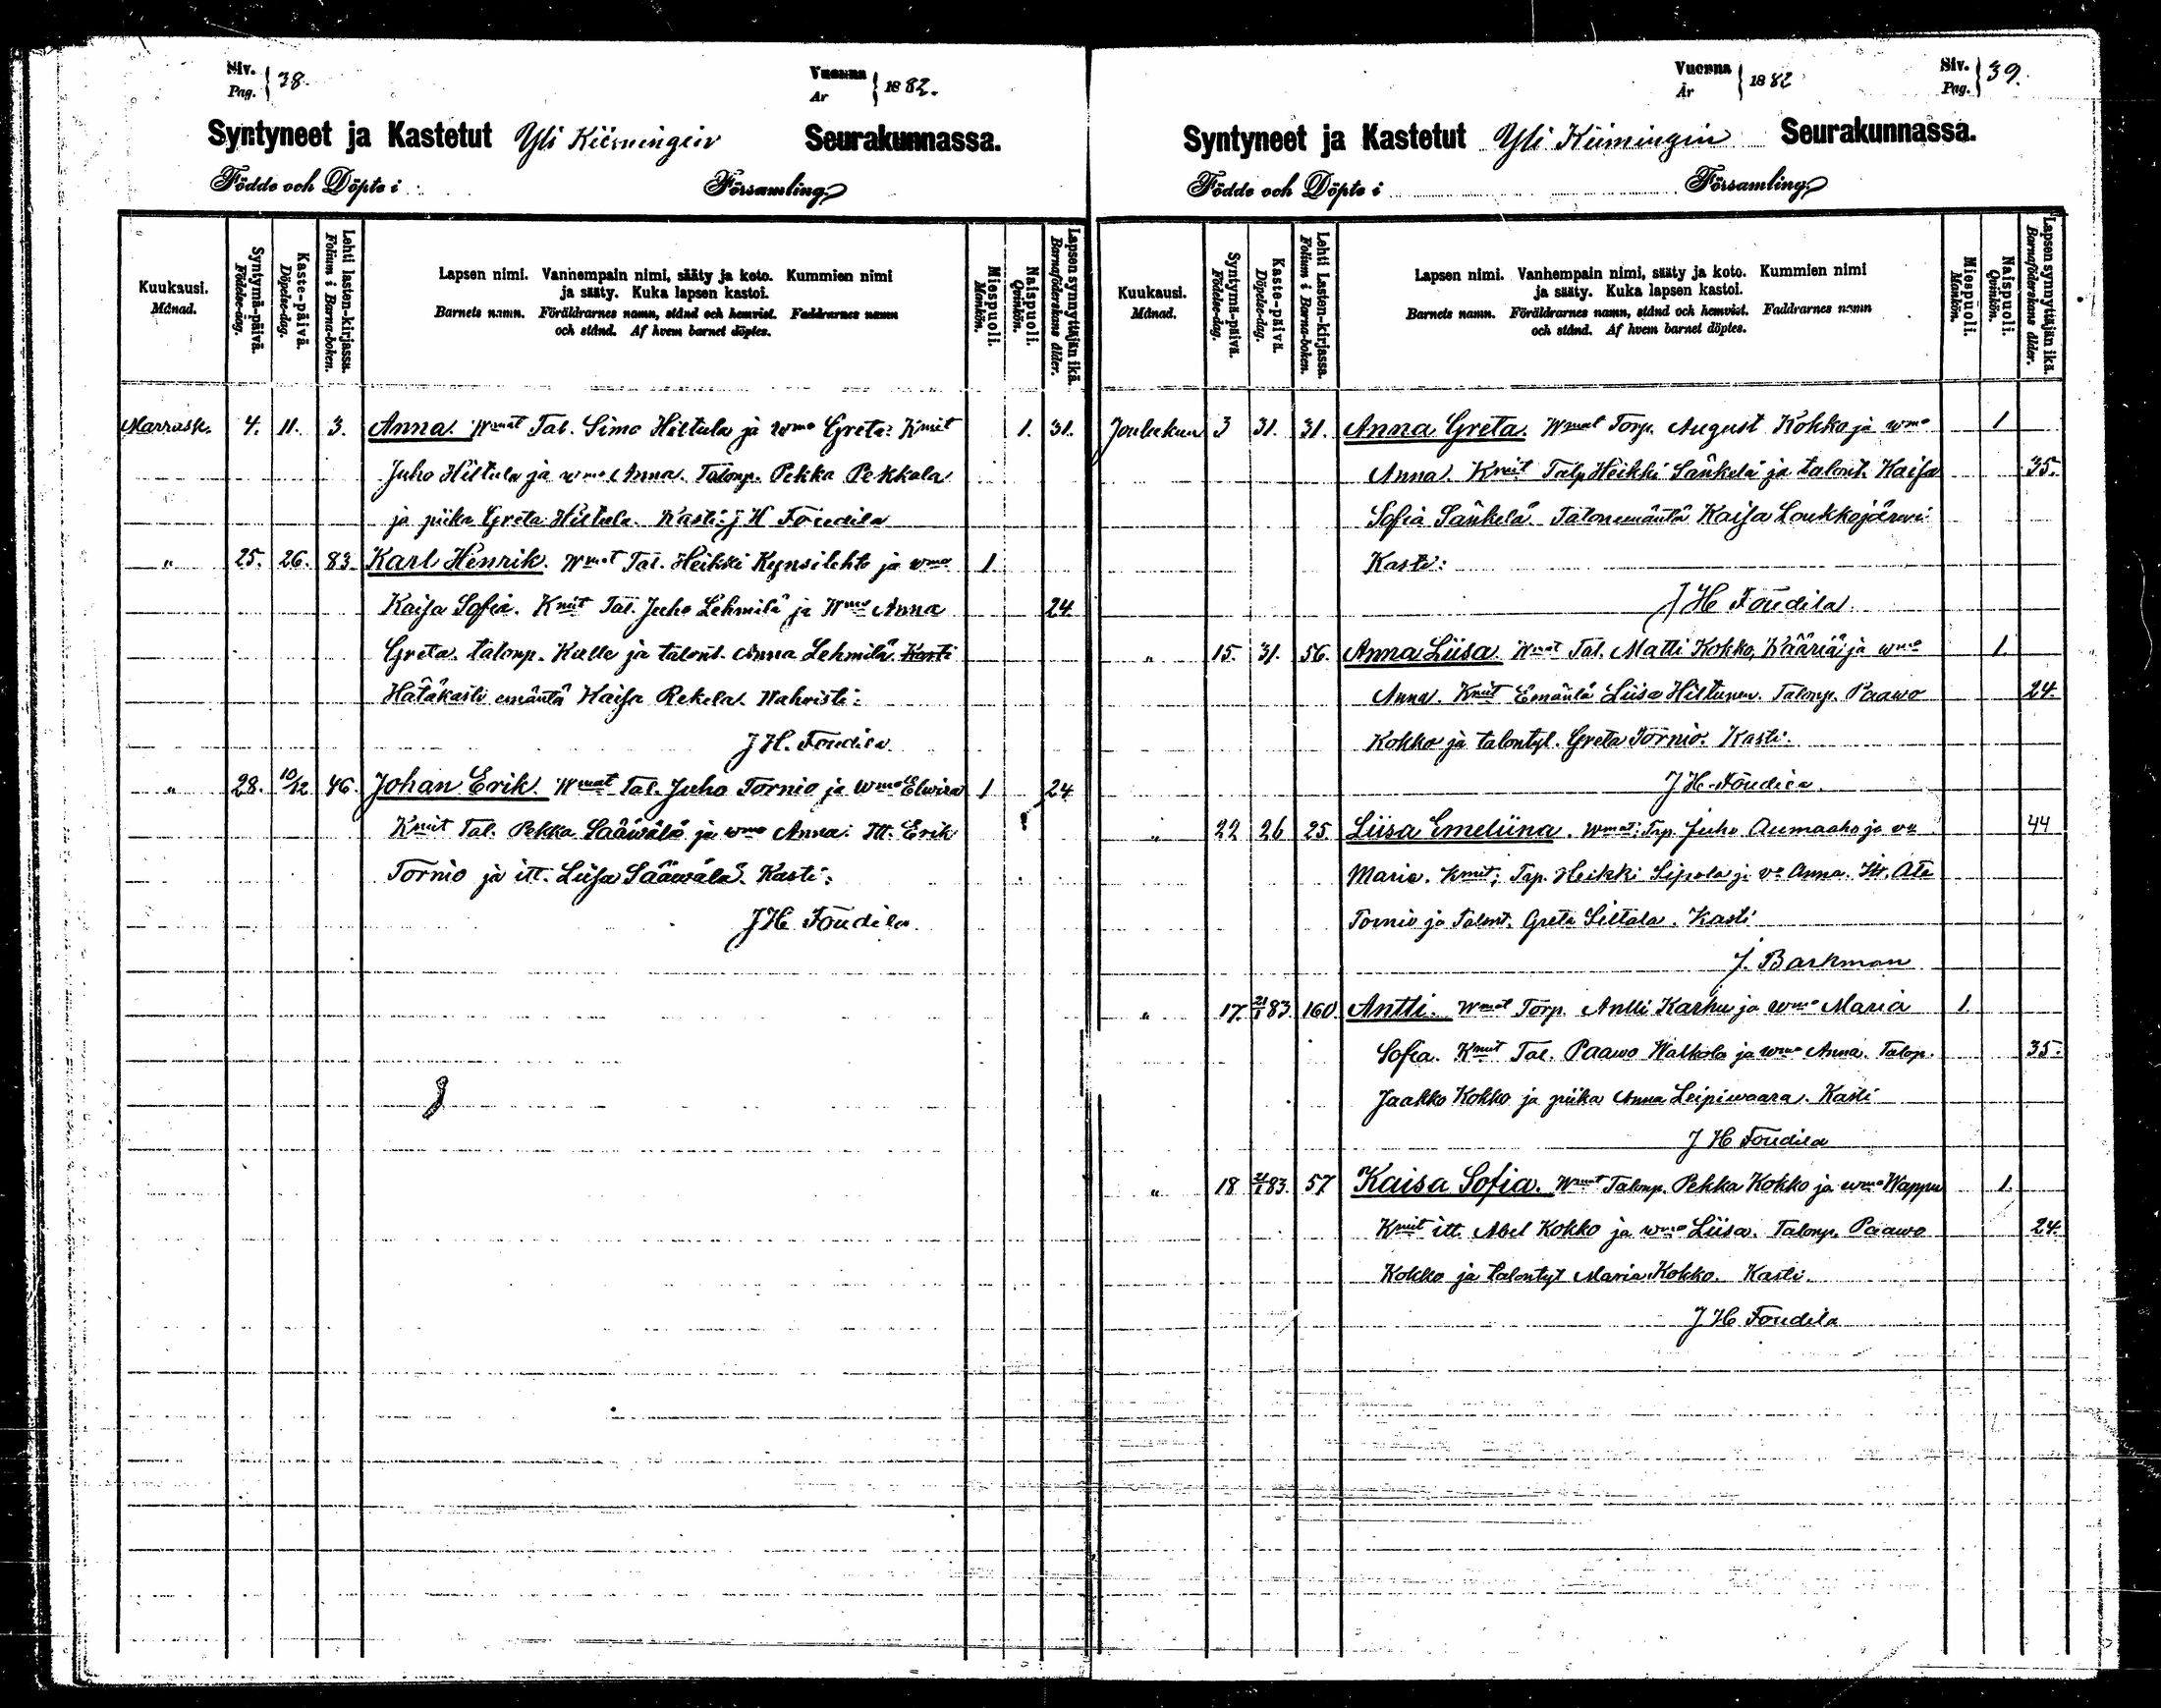 Siv. Pag. } 38.
Vuonna År } 1882.
Syntyneet ja Kastetut Yli Kiimingin Seurakunnassa.
Födde och Döpte i Församling
Kuukausi. Månad.
Syntymä-päivä. Födelse-dag.
Kaste-päivä. Döpelse-dag.
Lehti lasten-kirjassa. Folium i Barna-boken.
Lapsen nimi. Vanhempain nimi, sääty ja koto. Kummien nimi
ja sääty. Kuka lapsen kastoi.
Barnets namn. Föräldrarnes namn, stånd och hemvist. Faddrarnes namn
och stånd. Af hvem barnet döptes.
Miespuoli. Mankön.
Naispuoli. Qvinkön.
Lapsen synnyttäjän ikä. Barnaföderskans ålder.
Marrask. 4. 11. 3. Anna. Wmat Tal. Simo Hiltula ja wmo Greta: Kmit 1. 31.
Juho Hiltula ja wmo Anna. Talonp. Pekka Pekkala
ja piika Greta Hiltula. Kasti: J H Foudila
" 25. 26. 83 Karl Henrik. Wmat Tal. Heikki Kynsilehto ja wmo 1.
Kaisa Sofia. Kmit Tal. Juho Lehmilä ja Wmo Anna 24
Greta. talonp. Kalle ja talont. Anna Lehmilä. Kasti
Hätäkasti emäntä Kaisa Rekela. Wahvisti:
J H. Foudila
" 28. 10/12 46. Johan Erik. Wmat Tal. Juho Tornio ja wmo Elwira 1 24
Kmit Tal. Pekka Sääwälä ja wmo Anna: Itt. Erik
Tornio ja itt. Liisa Sääwälä. Kasti:
J H Foudila.
Vuonna År } 1882
Siv. Pag. } 39.
Syntyneet ja Kastetut Yli Kiimingin Seurakunnassa.
Födde och Döpte i Församling
Kuukausi. Månad.
Syntymä-päivä. Födelse-dag.
Kaste-päivä. Döpelse-dag.
Lehti Lasten-kirjassa. Folium i Barna-boken.
Lapsen nimi. Vanhempain nimi, sääty ja koto. Kummien nimi
ja sääty. Kuka lapsen kastoi.
Barnets namn. Föräldrarnes namn, stånd och hemvist. Faddrarnes namn
och stånd. Af hvem barnet döptes.
Miespuoli. Mankön.
Naispuoli. Qvinkön.
Lapsen synnyttäjän ikä. Barnaföderskans ålder.
Joulukuu 3 31. 31. Anna Greta. Wmat Torp. August Kokko ja wmo 1
Anna. Kmit Talp Heikki Sankelä ja talont. Kaisa 35.
Sofia Sankelä. Talonemäntä Kaisa Loukkojärwi
Kasti:
J H Foudila.
" 15. 31. 56. Anna Liisa. Wmat Tal. Matti Kokko, Kääriä ja wmo 1.
Anna. Kmit Emäntä Liisa Hiltunen. Talonp. Paawo 24.
Kokko ja talontyt. Greta Tornio. Kasti.
J H. Foudila.
" 22 26 25. Liisa Emeliina. Wmat: Trp. Juho Aumaaho ja vo 44
Maria. Kmit; Trp. Heikki Sipola ja vo Anna. Itt. Ate
Tornio ja Talont. Greta Siltala. Kasti
J. Barkman
" 17. 21/1 83. 160. Antti. Wmat Torp. Antti Karhu ja wmo Maria 1.
Sofia. Kmit Tal. Paawo Walkola ja wmo Anna. Talop. 35.
Jaakko Kokko ja piika Anna Leipiwaara. Kasti
J H Foudila
" 18 21/1 83. 57 Kaisa Sofia. Wmat Talonp. Pekka Kokko ja wmo Wappu 1.
Kmit itt. Abel Kokko ja wmo Liisa. Talonp. Paawo 24.
Kokko ja talontyt Maria Kokko. Kasti.
J H Foudila